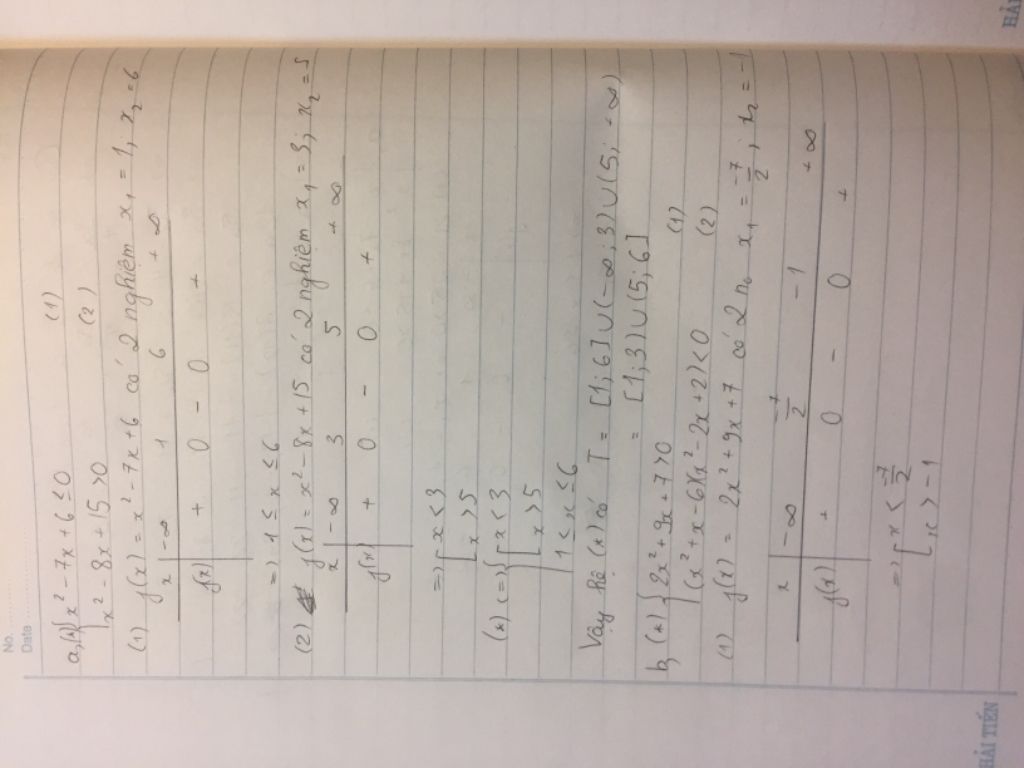 No. ....................
Date ....................
a, (*) { x² - 7x + 6 ≤ 0 (1)
x² - 8x + 15 > 0 (2)
(1) f(x) = x² - 7x + 6 có 2 nghiệm x₁ = 1, x₂ = 6
x | -∞ 1 6 +∞
f(x) | + 0 - 0 +
=) 1 ≤ x ≤ 6
(2) f(x) = x² - 8x + 15 có 2 nghiệm x₁ = 3; x₂ = 5
x | -∞ 3 5 +∞
f(x) | + 0 - 0 +
=) [ x < 3
x > 5
(*) (=) { [ x < 3
x > 5
1 ≤ x ≤ 6
Vậy hệ (*) có T = [1; 6] ∪ (-∞; 3) ∪ (5; +∞)
= [1; 3) ∪ (5; 6]
b, (*) { 2x² + 9x + 7 > 0 (1)
(x² + x - 6)(x² - 2x + 2) < 0 (2)
(1) f(x) = 2x² + 9x + 7 có 2 n₀ x₁ = -7/2; x₂ = -1
x | -∞ -7/2 -1 +∞
f(x) | + 0 - 0 +
=) [ x < -7/2
x > -1
HẢI TIẾN